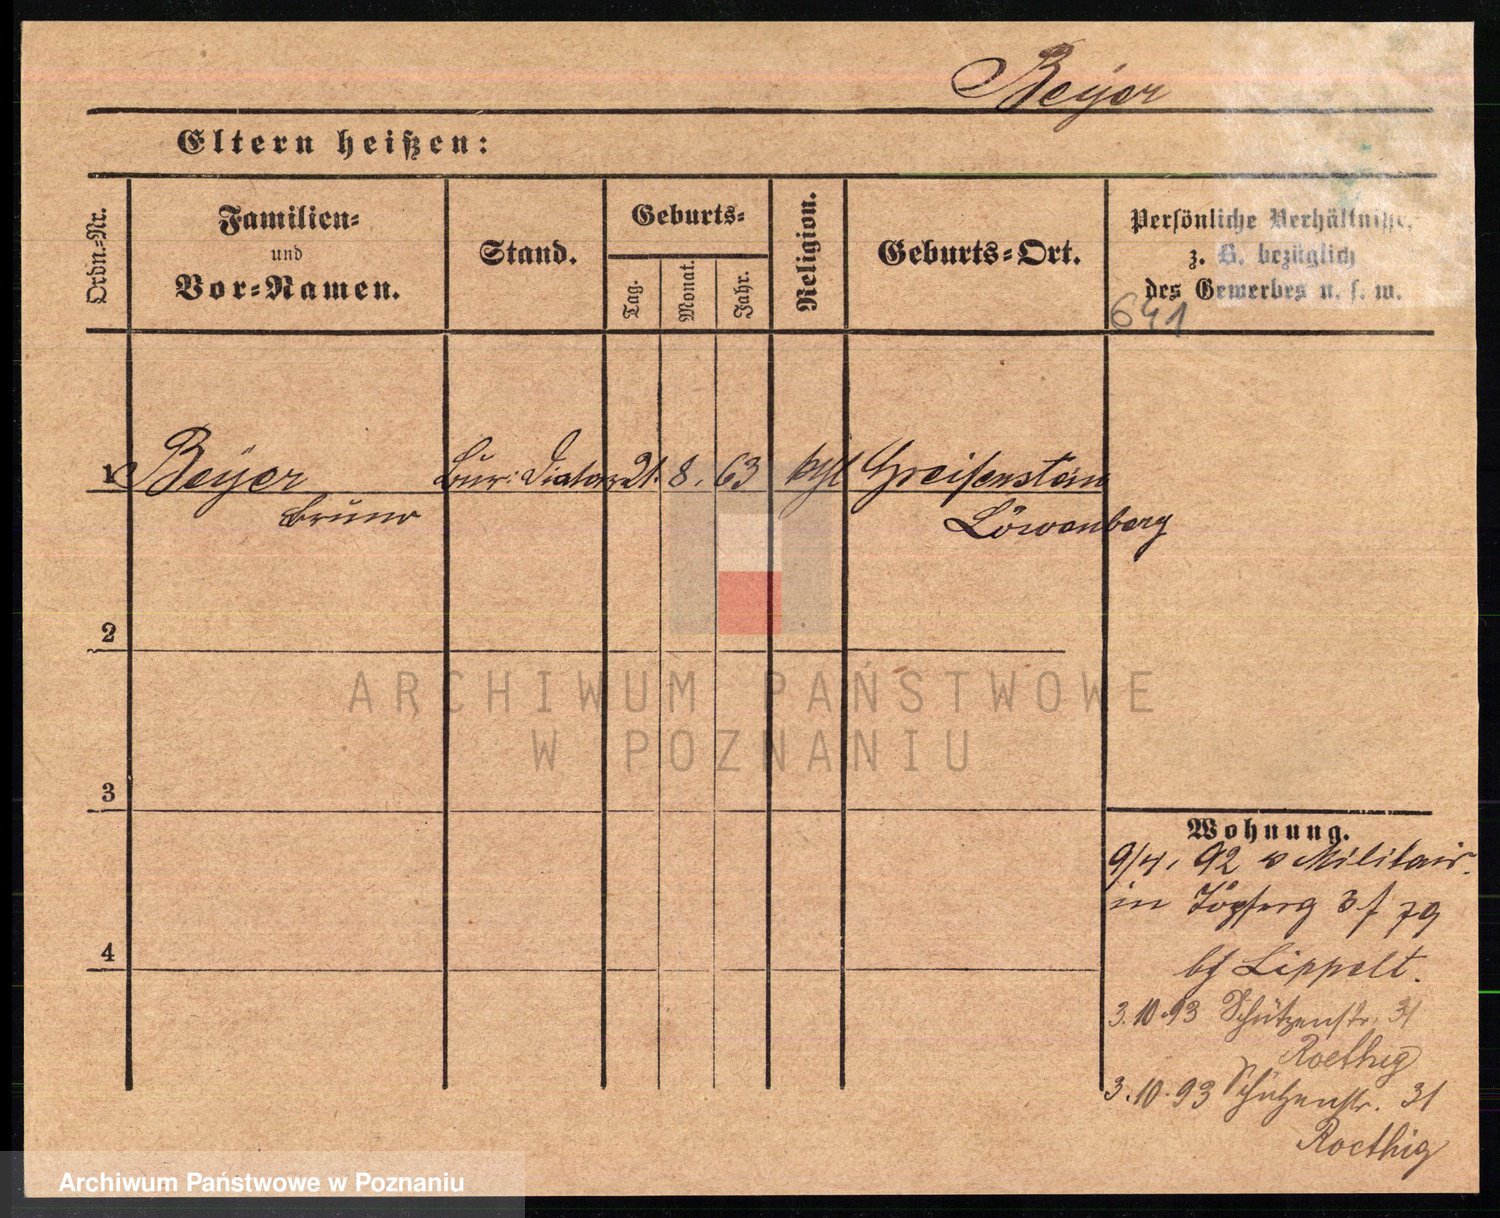 Beyer
Eltern heißen:
Ordn.-Nr.
Familien-
und
Vor-Namen.
Stand.
Geburts-
Tag.
Monat.
Jahr.
Religion.
Geburts-Ort.
Persönliche Verhältnisse,
z. B. bezüglich
des Gewerbes u. s. w.
641
1 Beyer Bur: Diätar 21. 8. 63 kath Greifenstein
Bruno Löwenberg
2
ARCHIWUM PAŃSTWOWE
W POZNANIU
3
Wohnung.
9/4. 92 v Militair.
in 79
bf Lippelt.
4
3.10.93 Schützenstr. 31
Roethig
3.10.93 Schützenstr. 31
Roethig
Archiwum Państwowe w Poznaniu